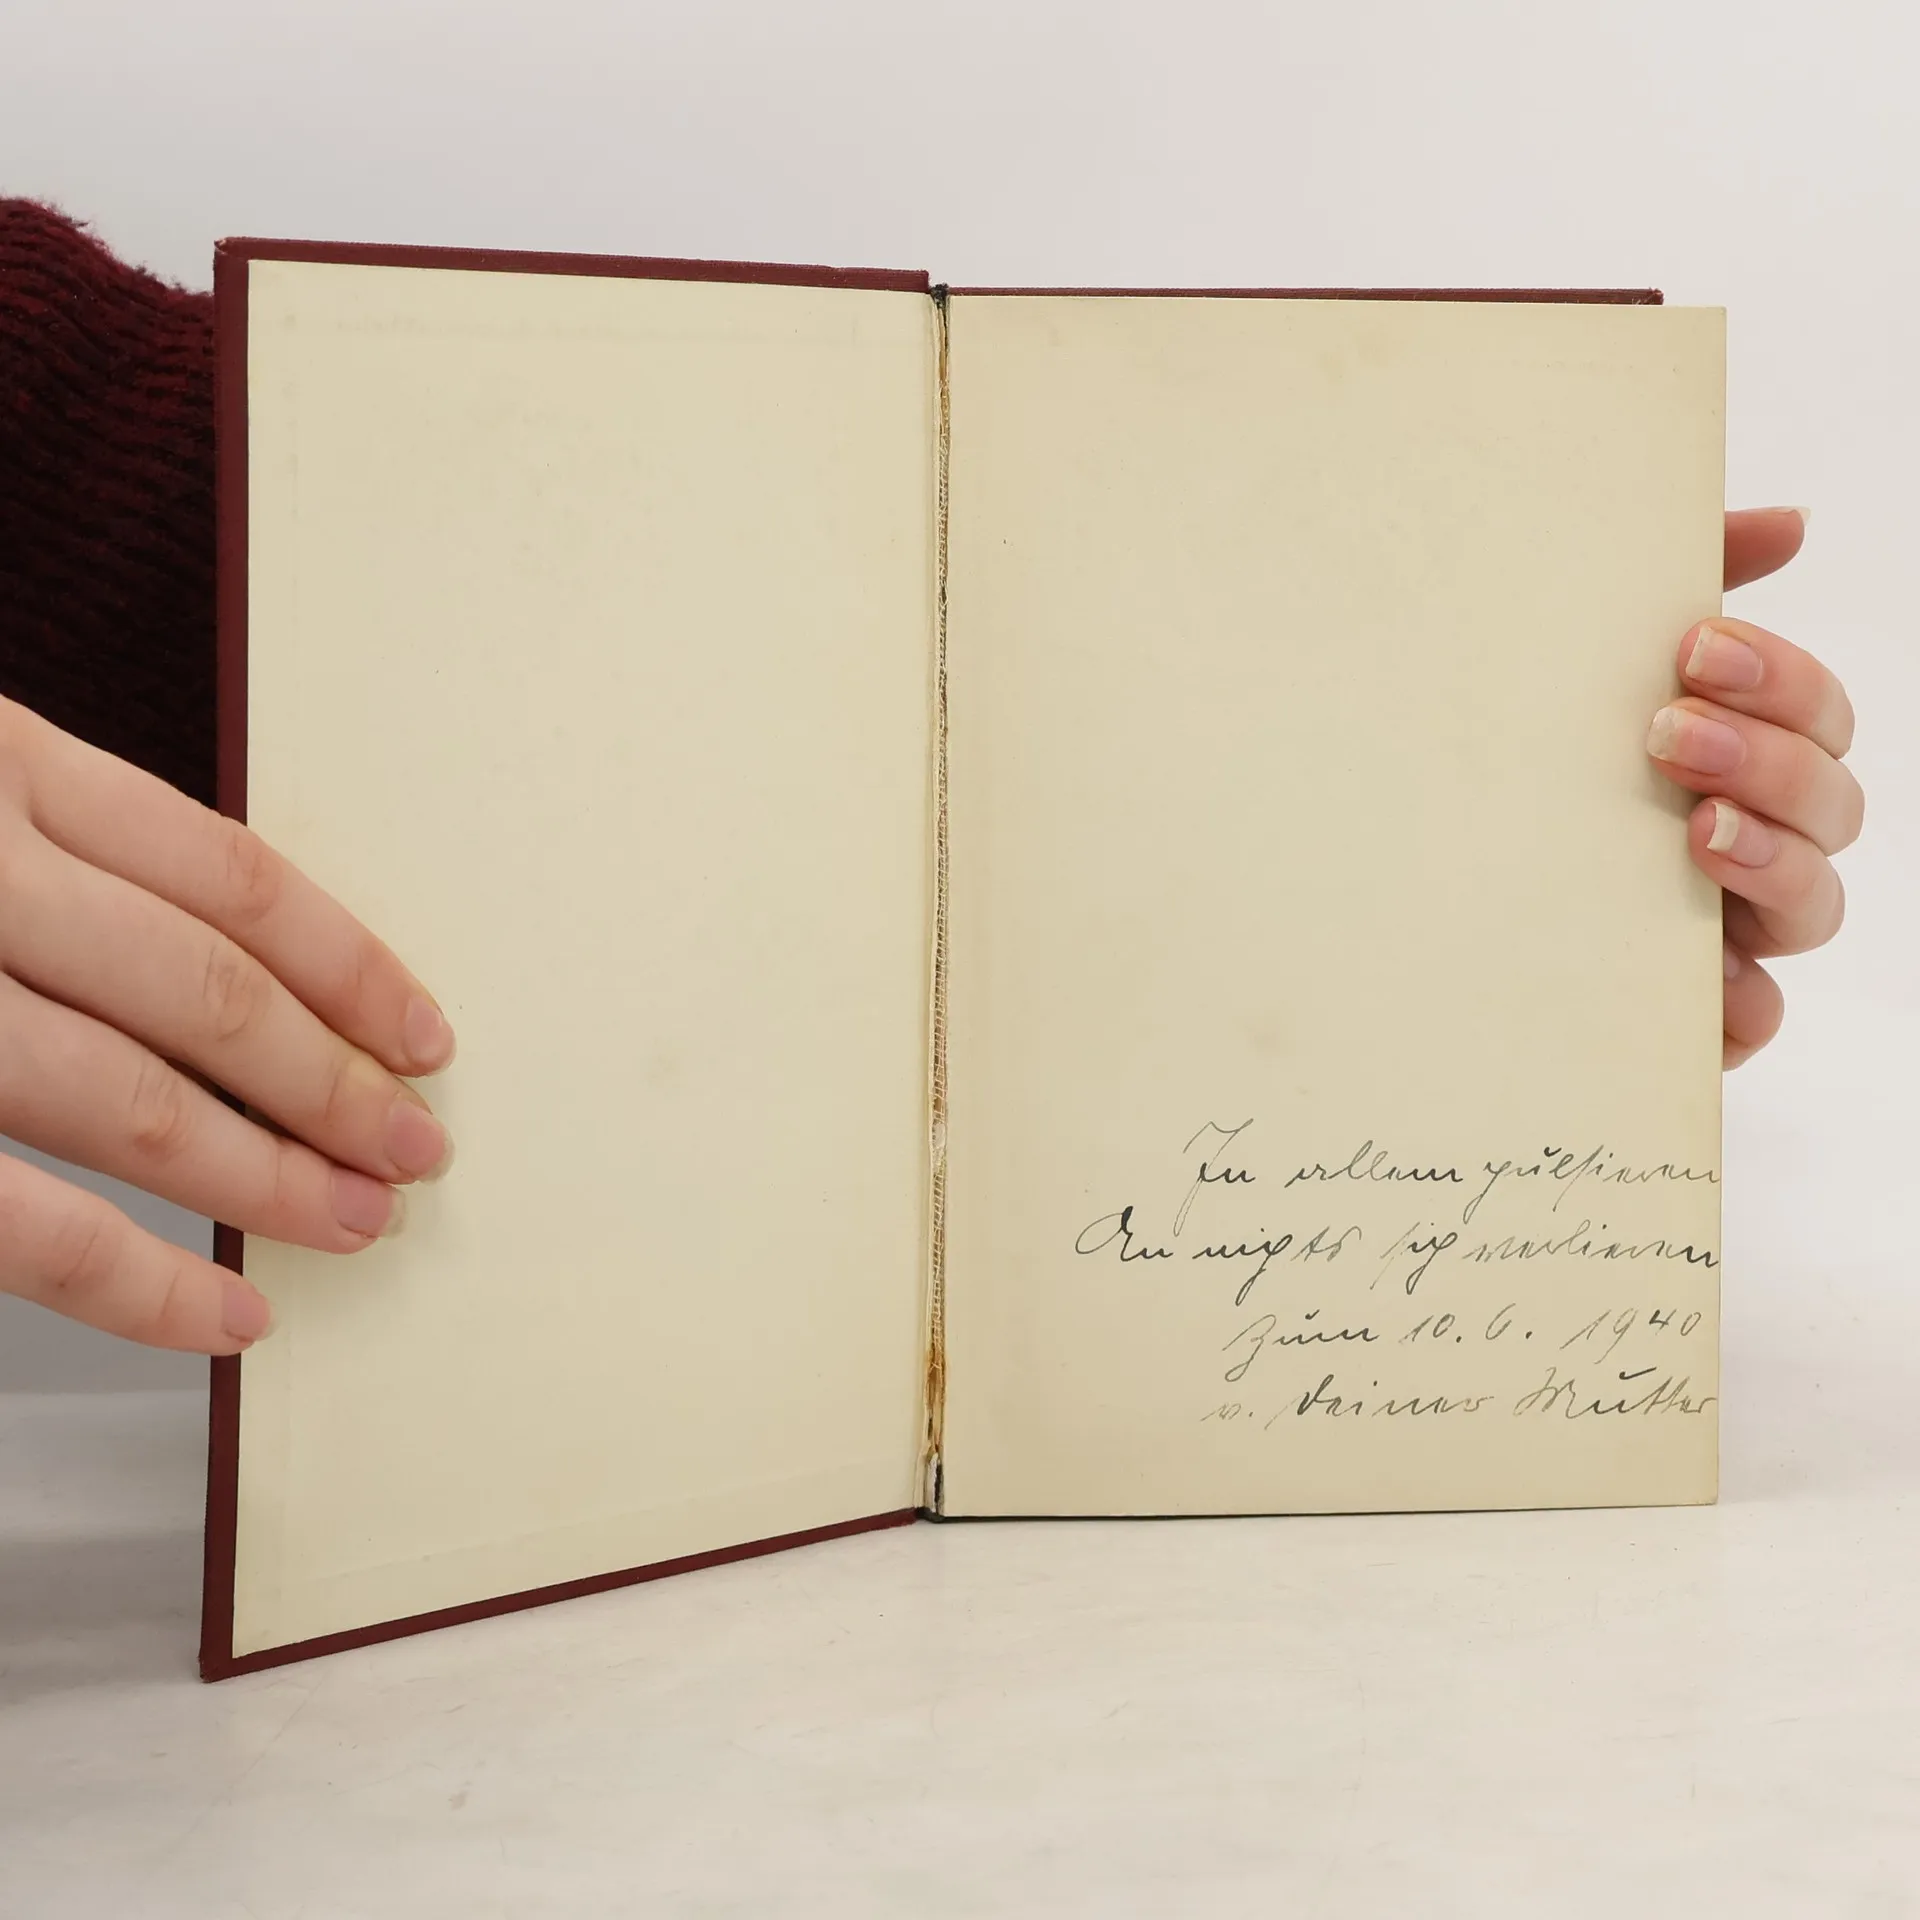 In allem pulsieren
An nichts sich verlieren
Zum 10. 6. 1940
v. Deiner Mutter